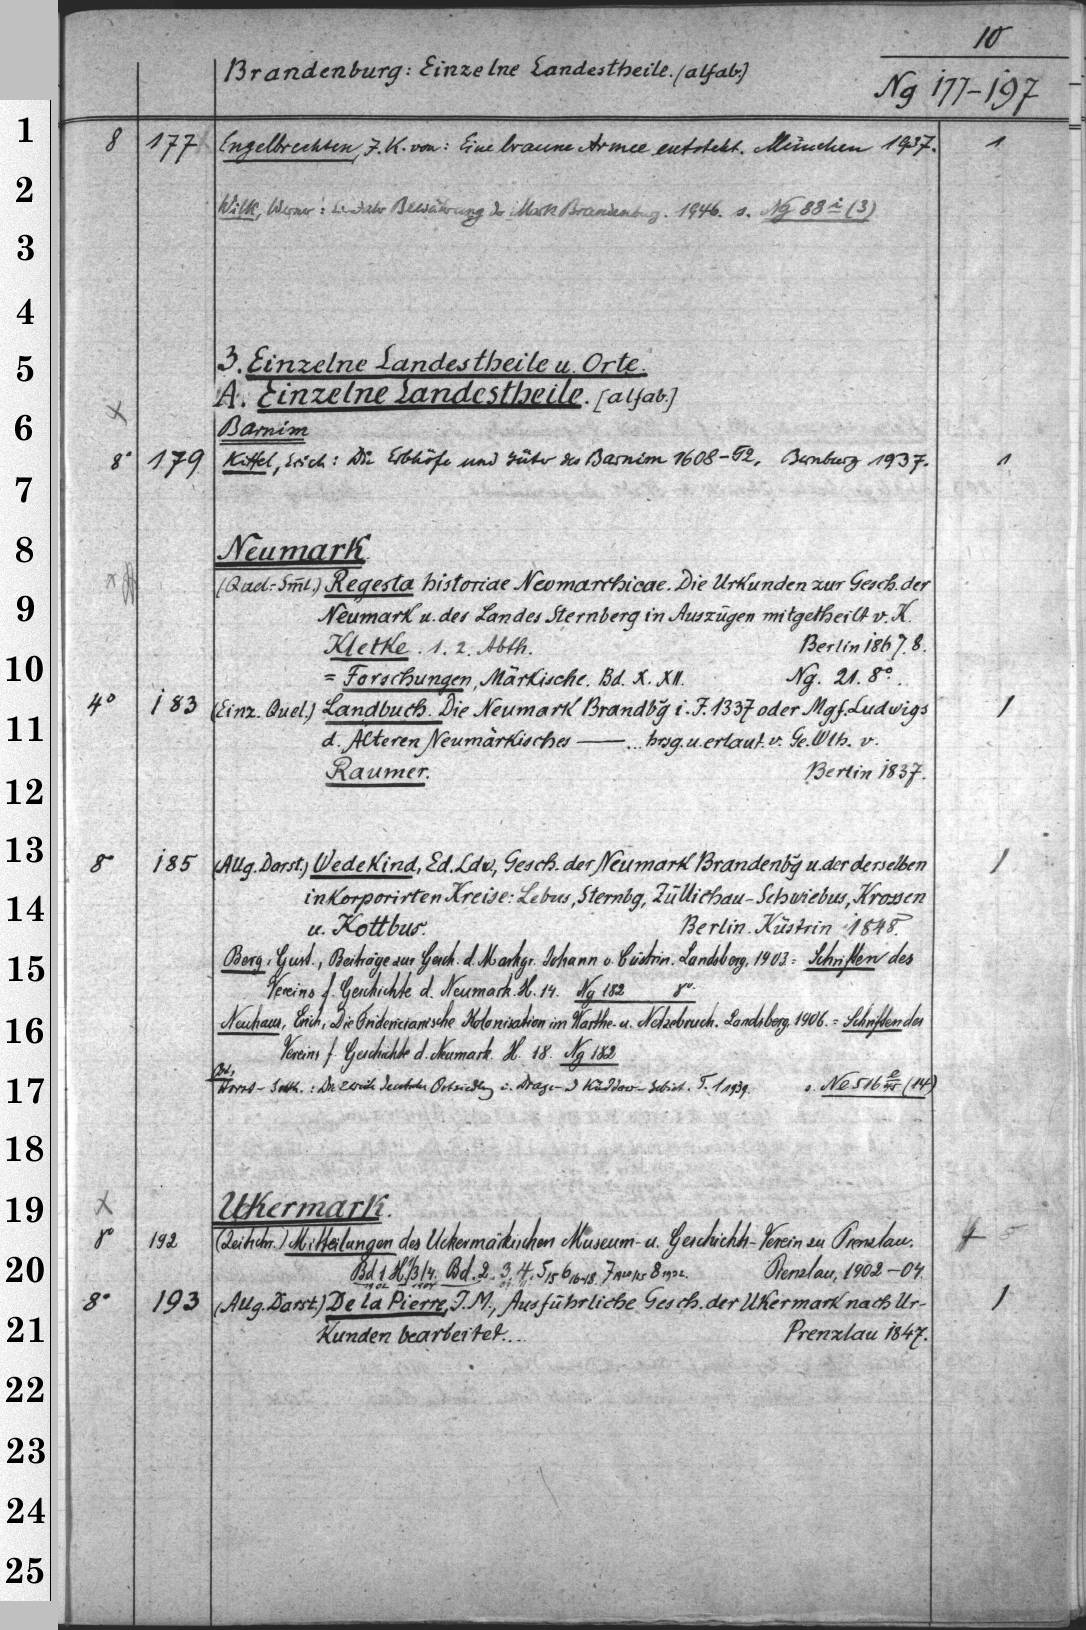 10
Brandenburg: Einzelne Landestheile. [alfab.]
Ng 177-197
8 177 Engelbrechten, J. K. von: Eine braune Armee entsteht. München 1937. 1
Wilk, Werner: Bewährung der Mark Brandenburg. 1946. s. Ng 88 i (3)
3. Einzelne Landestheile u. Orte.
A. Einzelne Landestheile. [alfab.]
Barnim
8° 179 Kittel, Erich: Die Erbhöfe und Güter des Barnim 1608-52. Bernburg 1937. 1
Neumark
(Quel.-Sml.) Regesta historiae Neomarchicae. Die Urkunden zur Gesch. der
Neumark u. des Landes Sternberg in Auszügen mitgetheilt v. K.
Kletke. 1. 2. Abth. Berlin 1867. 8.
= Forschungen, Märkische. Bd. X. XII. Ng. 21. 8°.
4° 183 (Einz. Quel.) Landbuch. Die Neumark Brandbg i. J. 1337 oder Mgf. Ludwigs
d. Älteren Neumärkisches —— ... hrsg. u. erläut. v. Ge. Wlh. v. 1
Raumer. Berlin 1837.
8° 185 (Allg. Darst.) Wedekind, Ed. Ldw., Gesch. der Neumark Brandenbg u. der derselben 1
inkorporirten Kreise: Lebus, Sternbg, Züllichau-Schwiebus, Krossen
u. Kottbus. Berlin. Küstrin 1848.
Berg, Gust., Beiträge zur Gesch. d. Markgr. Johann v. Cüstrin. Landsberg, 1903. = Schriften des
Vereins f. Geschichte d. Neumark. H. 14. Ng 182 8°
Neuhaus, Erich, Die Fridericianische Kolonisation im Warthe- u. Netzebruch. Landsberg, 1906. = Schriften des
Vereins f. Geschichte d. Neumark. H. 18. Ng 182
Die zweite deutsche Ostsiedlg i. Drage- u. Küddow-Gebiet. T. 1 1939. s. Ne 516 (14)
Ukermark.
8° 192 (Zeitschr.) Mitteilungen des Uckermärkischen Museum- u. Geschichts-Verein zu Prenzlau. 5
Bd 1 H 3/4. Bd. 2. 3. 4. 5 6 7 8 Prenzlau, 1902-04.
8° 193 (Allg. Darst.) De la Pierre, J. M., Ausführliche Gesch. der Ukermark nach Ur- 1
kunden bearbeitet... Prenzlau 1847.
1
2
3
4
5
6
7
8
9
10
11
12
13
14
15
16
17
18
19
20
21
22
23
24
25